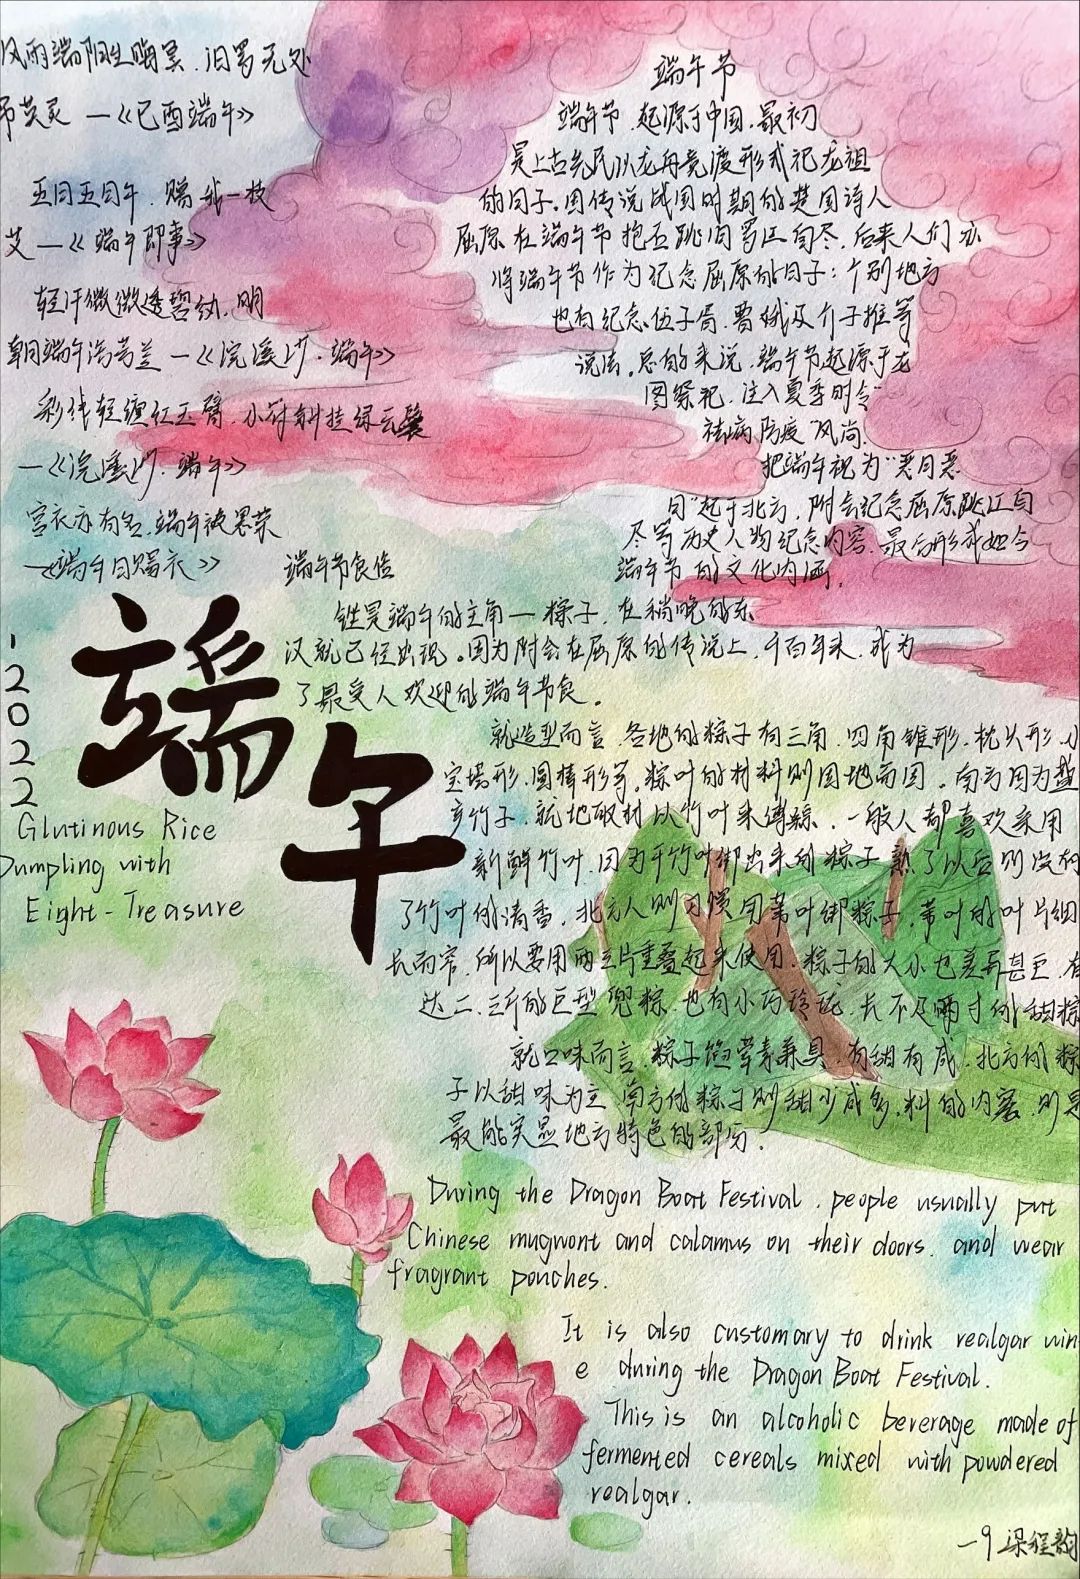 风雨端阳生晦冥，汨罗无处
吊英灵 —《已酉端午》
五月五日午，赠我一枝
艾 —《端午即事》
轻汗微微透碧纨，明
朝端午浴芳兰 —《浣溪沙·端午》
彩线轻缠红玉臂，小符斜挂绿云鬟
—《浣溪沙·端午》
宫衣亦有名，端午被恩荣
—《端午日赐衣》
端午节
端午节，起源于中国，最初
是上古先民以龙舟竞渡形式祀龙祖
的日子。因传说战国时期的楚国诗人
屈原在端午节抱石跳汨罗江自尽，后来人们亦
将端午节作为纪念屈原的日子；个别地方
也有纪念伍子胥、曹娥及介子推等
说法。总的来说，端午节起源于龙
图祭祀，注入夏季时令“
祛病防疫”风尚，
把端午视为“恶月恶
日”起于北方，附会纪念屈原跳江自
尽等历史人物纪念内容，最后形成如今
端午节的文化内涵。
端午节食俗
的主角—粽子，在稍晚的东
汉就已经出现。因为附会在屈原的传说上，千百年来，成为
了最受人欢迎的端午节食。
就造型而言，各地的粽子有三角、四角锥形、枕头形、小
宝塔形、圆棒形等。粽叶的材料则因地而
南方因为盛
产竹子，就地取材以竹叶来缚粽。一般人都喜欢采用
新鲜竹叶，因为干竹叶绑出来的粽子，熟了以后则没有
了竹叶的清香。北方人则习惯用苇叶绑粽子，苇叶的叶片细
长而窄，所以要用两三片重叠起来使用。粽子的大小也差异甚巨，有
达二、三斤的巨型兜粽，也有小巧玲珑，长不足两寸的甜粽
就口味而言，粽子馅荤素兼具，有甜有咸。北方的粽
子以甜味为主，南方的粽子则甜少咸多。料的内容，则是
最能突显地方特色的部份。
-2022
端午
Glutinous Rice
Dumpling with
Eight-Treasure
During the Dragon Boat Festival, people usually put
Chinese mugwort and calamus on their doors, and wear
fragrant pouches.
It is also customary to drink realgar win
e during the Dragon Boat Festival.
This is an alcoholic beverage made of
fermented cereals mixed with powdered
realgar.
—9 梁程韵